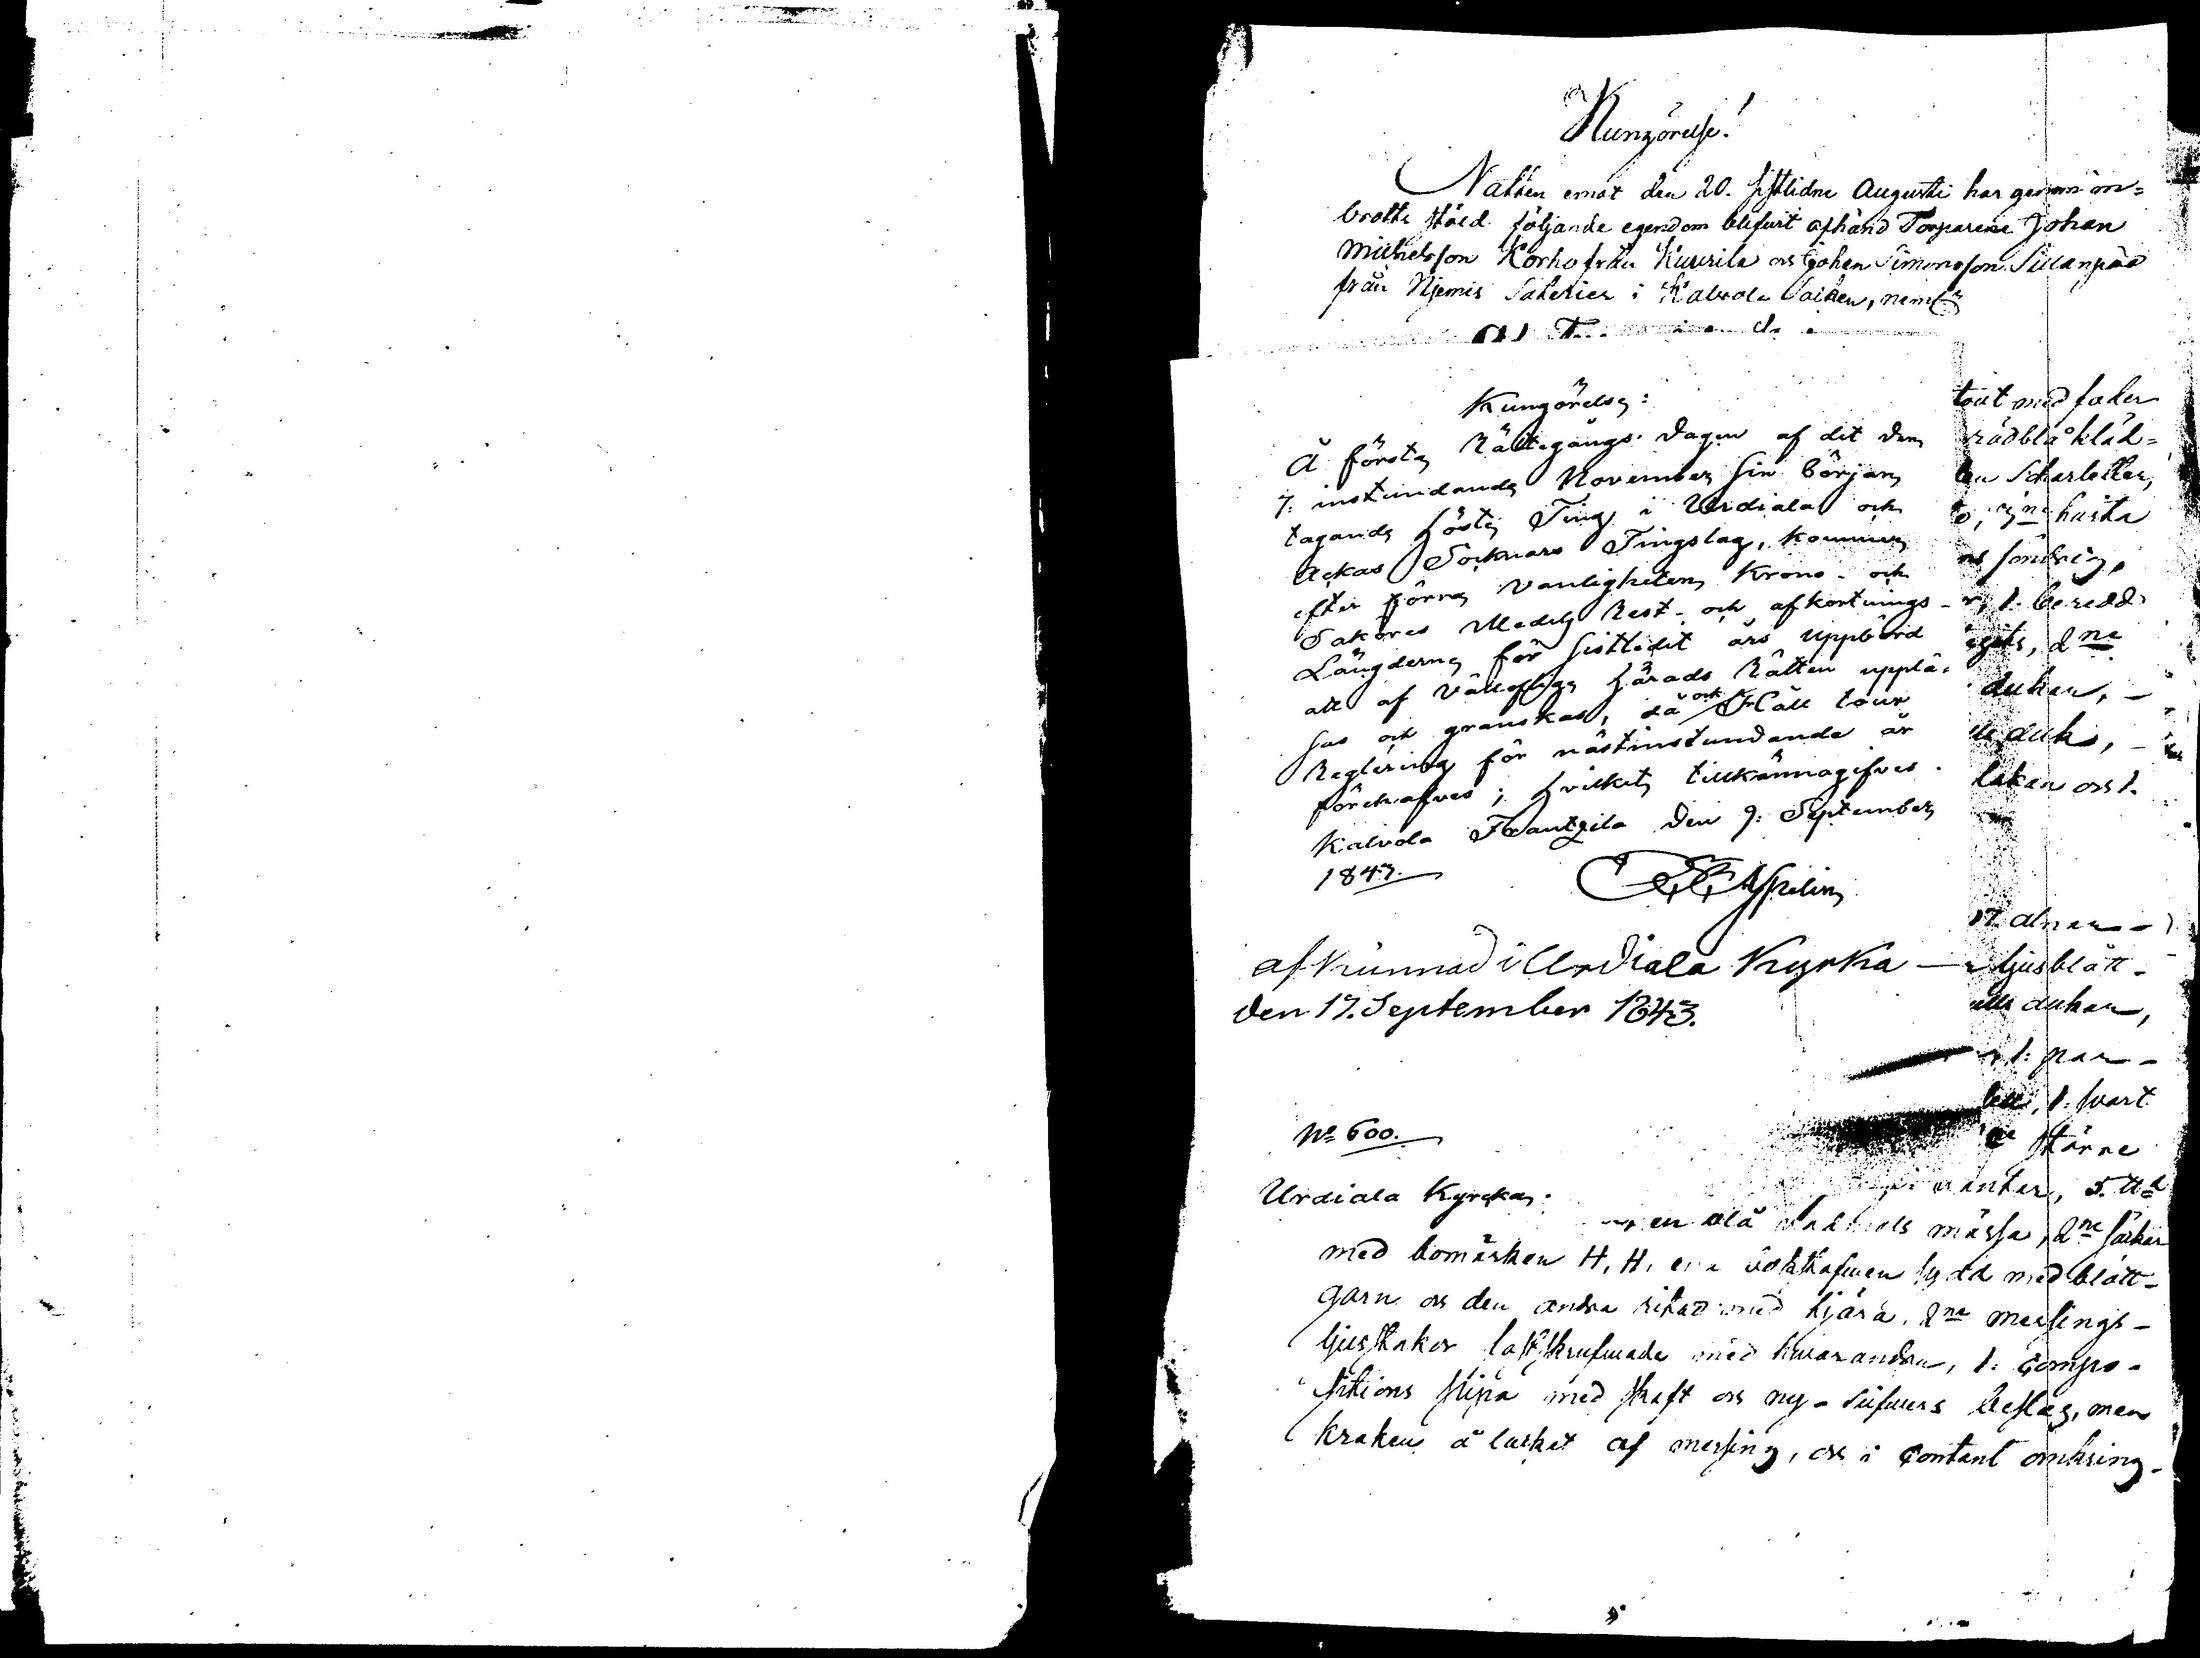 Kungörelse!
Natten emot den 20. sistlidne Augusti har genom in=
brotts stöld följande egendom blifvit afhänd Torparene Johan
Michelsson Korho från Kuurila och Johan Simonsson Sillanpää
från Njemis Säteries i Kalvola Socken, neml:
Kungörelse:
Å första Rättegångs-dagen af det den
7: instundande November sin början
tagande Höste Ting i Urdiala och
Ackas Socknars Tingslag, kommer
efter förra vanligheten Krono- och
Saköres Medels Rest- och afkortnings-
Längderne för sistledit års uppbörd
att af Vällofliga Härads Rätten upplä-
sas och granskas, då och Håll tour
Reglering för nästinstundande år
förehafves; hvilket tillkännagifves.
Kalvola Frantzila den 9: September
1843.
Aspelin
afkunnad i Urdiala Kyrka —
den 17. September 1843.
No 600.
Urdiala Kyrka.
tout med foder
rödblå kläd=
2ne
dukar, —
duk, —
lakan och 1.
17. alnar —
ljusblått-
dukar,
1: par —
1. svart
större
vantar, 5. ll
en blå vadmals mössa, 2ne säckar
med bomärken H, H, ena sydd med blått-
garn och den andra ritad med tjära, 2ne messings-
ljusstakar fastskrufvade med hvarandra, 1. Compo-
sitions pipa med skaft och ny-silfvers beslag, men
kraken å locket af messing, och i Contant omkring-